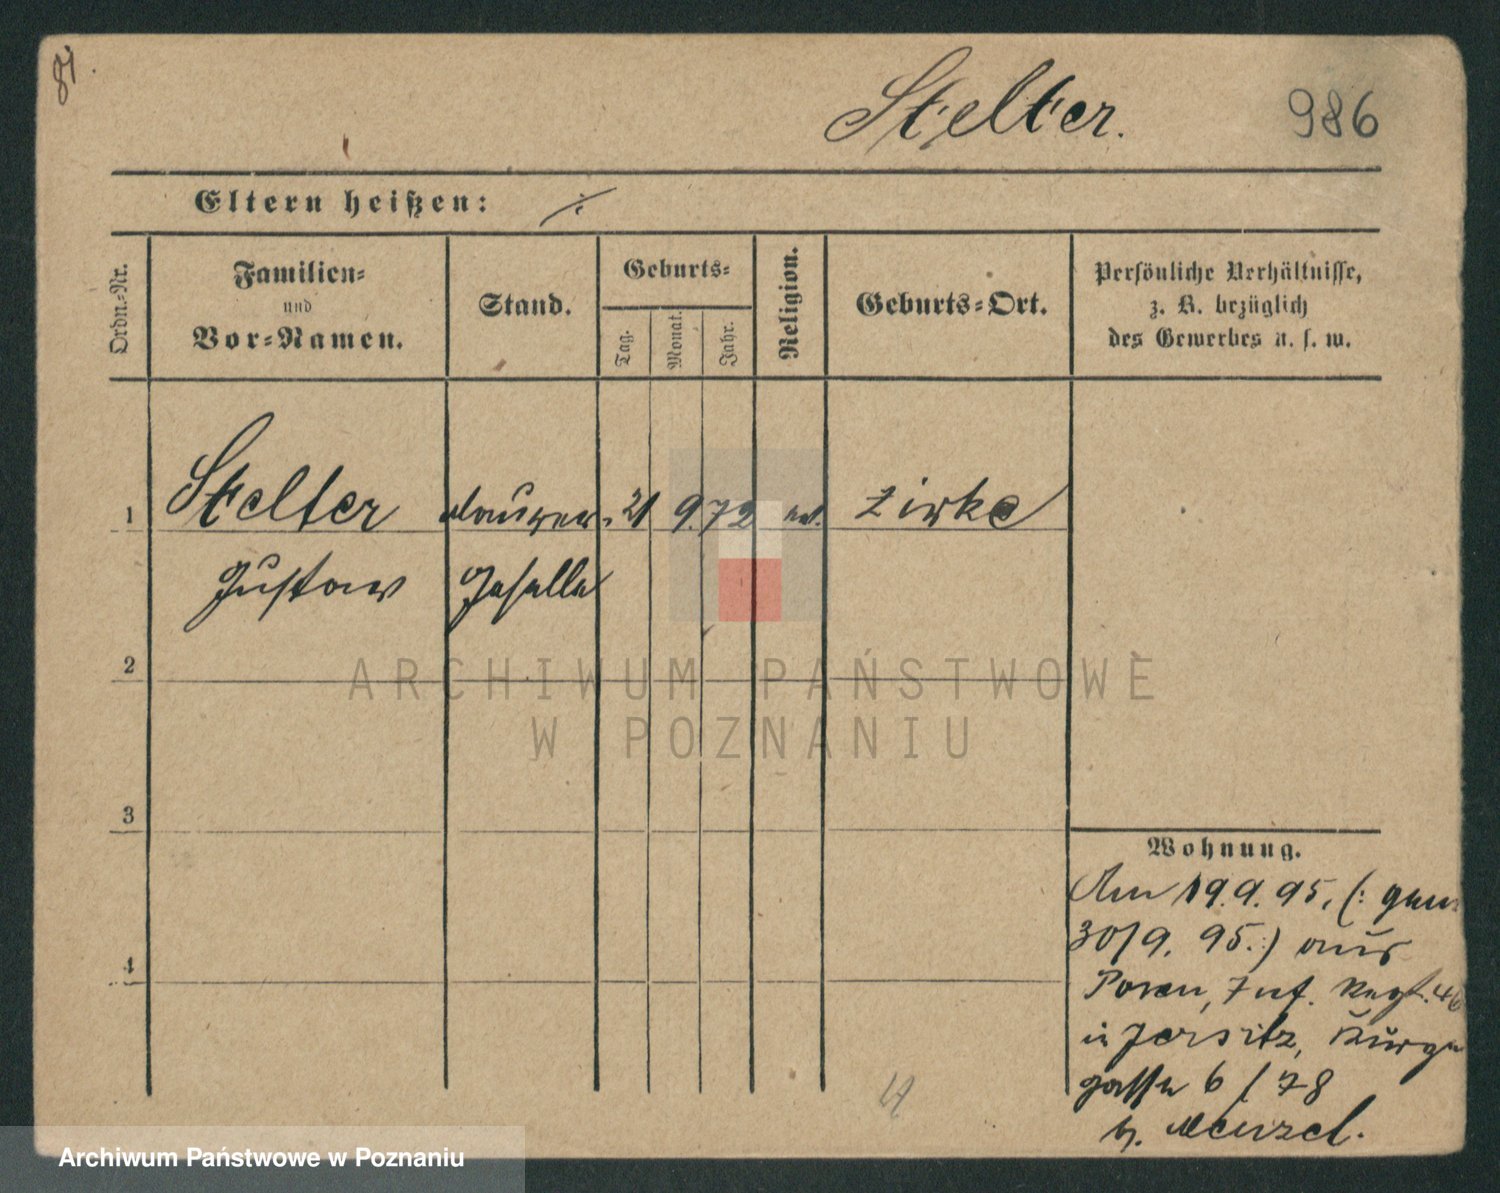 81.
Stelter.
986
Eltern heißen: ./.
Ordn.=Nr.
Familien=
und
Vor=Namen.
Stand.
Geburts=
Tag.
Monat.
Jahr.
Religion.
Geburts=Ort.
Persönliche Verhältnisse,
z. B. bezüglich
des Gewerbes u. s. w.
1 Stelter Maurer- 21 9. 72 ev. Zirke
Gustav Geselle
2
ARCHIWUM PAŃSTWOWE
W POZNANIU
3
4
Wohnung.
Am 19.9.95, (: gem:
30/9. 95.:) aus
Posen, Inf. Regt. 46
in Jersitz,
gasse 6 / 78
b. Menzel.
Archiwum Państwowe w Poznaniu